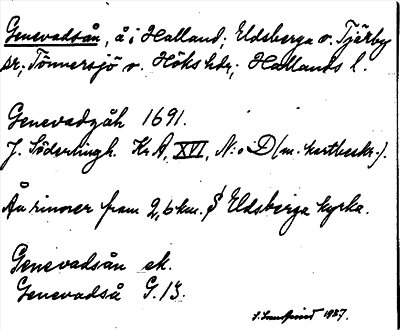 Genevadsån, å i Halland, Eldsberga o. Tjärby
sr; Tönnersjö o. Höks hdr; Hallands l.
Genevadzåh 1691.
J. Söderlingh. Kr A, XVI, N:o D (m. kartbeskr.).
Ån rinner fram 2,6 km. S Eldsberga kyrka.
Genevadsån ek.
Genevadså G.13.
1927.